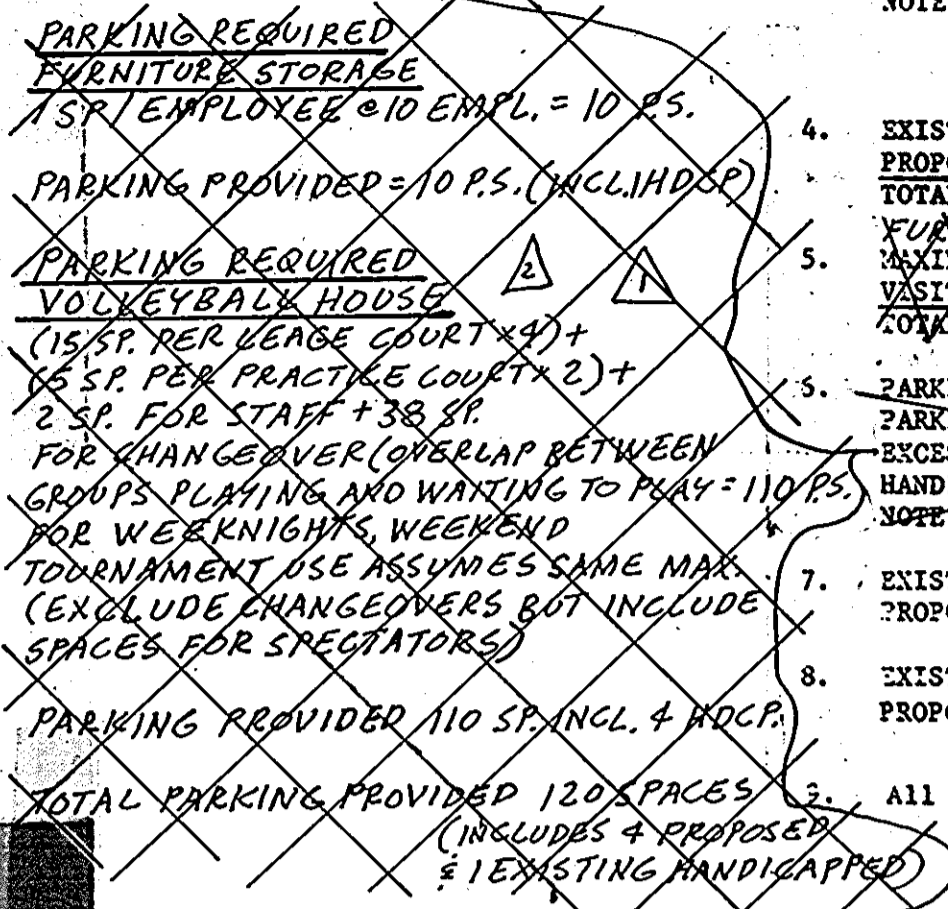 PARKING REQUIRED
FURNITURE STORAGE
1 SP/EMPLOYEE @ 10 EMPL. = 10 P.S.
PARKING PROVIDED = 10 P.S. (INCL. 1 HDSP)
PARKING REQUIRED
VOLLEYBALL HOUSE
2
1
(15 SP. PER LEAGE COURT x 4) +
(5 SP. PER PRACTICE COURT x 2) +
2 SP. FOR STAFF + 38 SP.
FOR CHANGEOVER (OVERLAP BETWEEN
GROUPS PLAYING AND WAITING TO PLAY = 110 P.S.
FOR WEEKNIGHTS, WEEKEND
TOURNAMENT USE ASSUMES SAME MAX.
(EXCLUDE CHANGEOVERS BUT INCLUDE
SPACES FOR SPECTATORS)
PARKING PROVIDED 110 SP. INCL. 4 HDCP.
TOTAL PARKING PROVIDED 120 SPACES
(INCLUDES 4 PROPOSED
& 1 EXISTING HANDICAPPED)
NOTE
4. EXIST
PROPO
TOTAL
FUR
5. MAXI
VISIT
TOTA
6. PARK
PARK
EXCES
HAND
NOTE
7. EXIST
PROPO
8. EXIST
PROPO
9. All